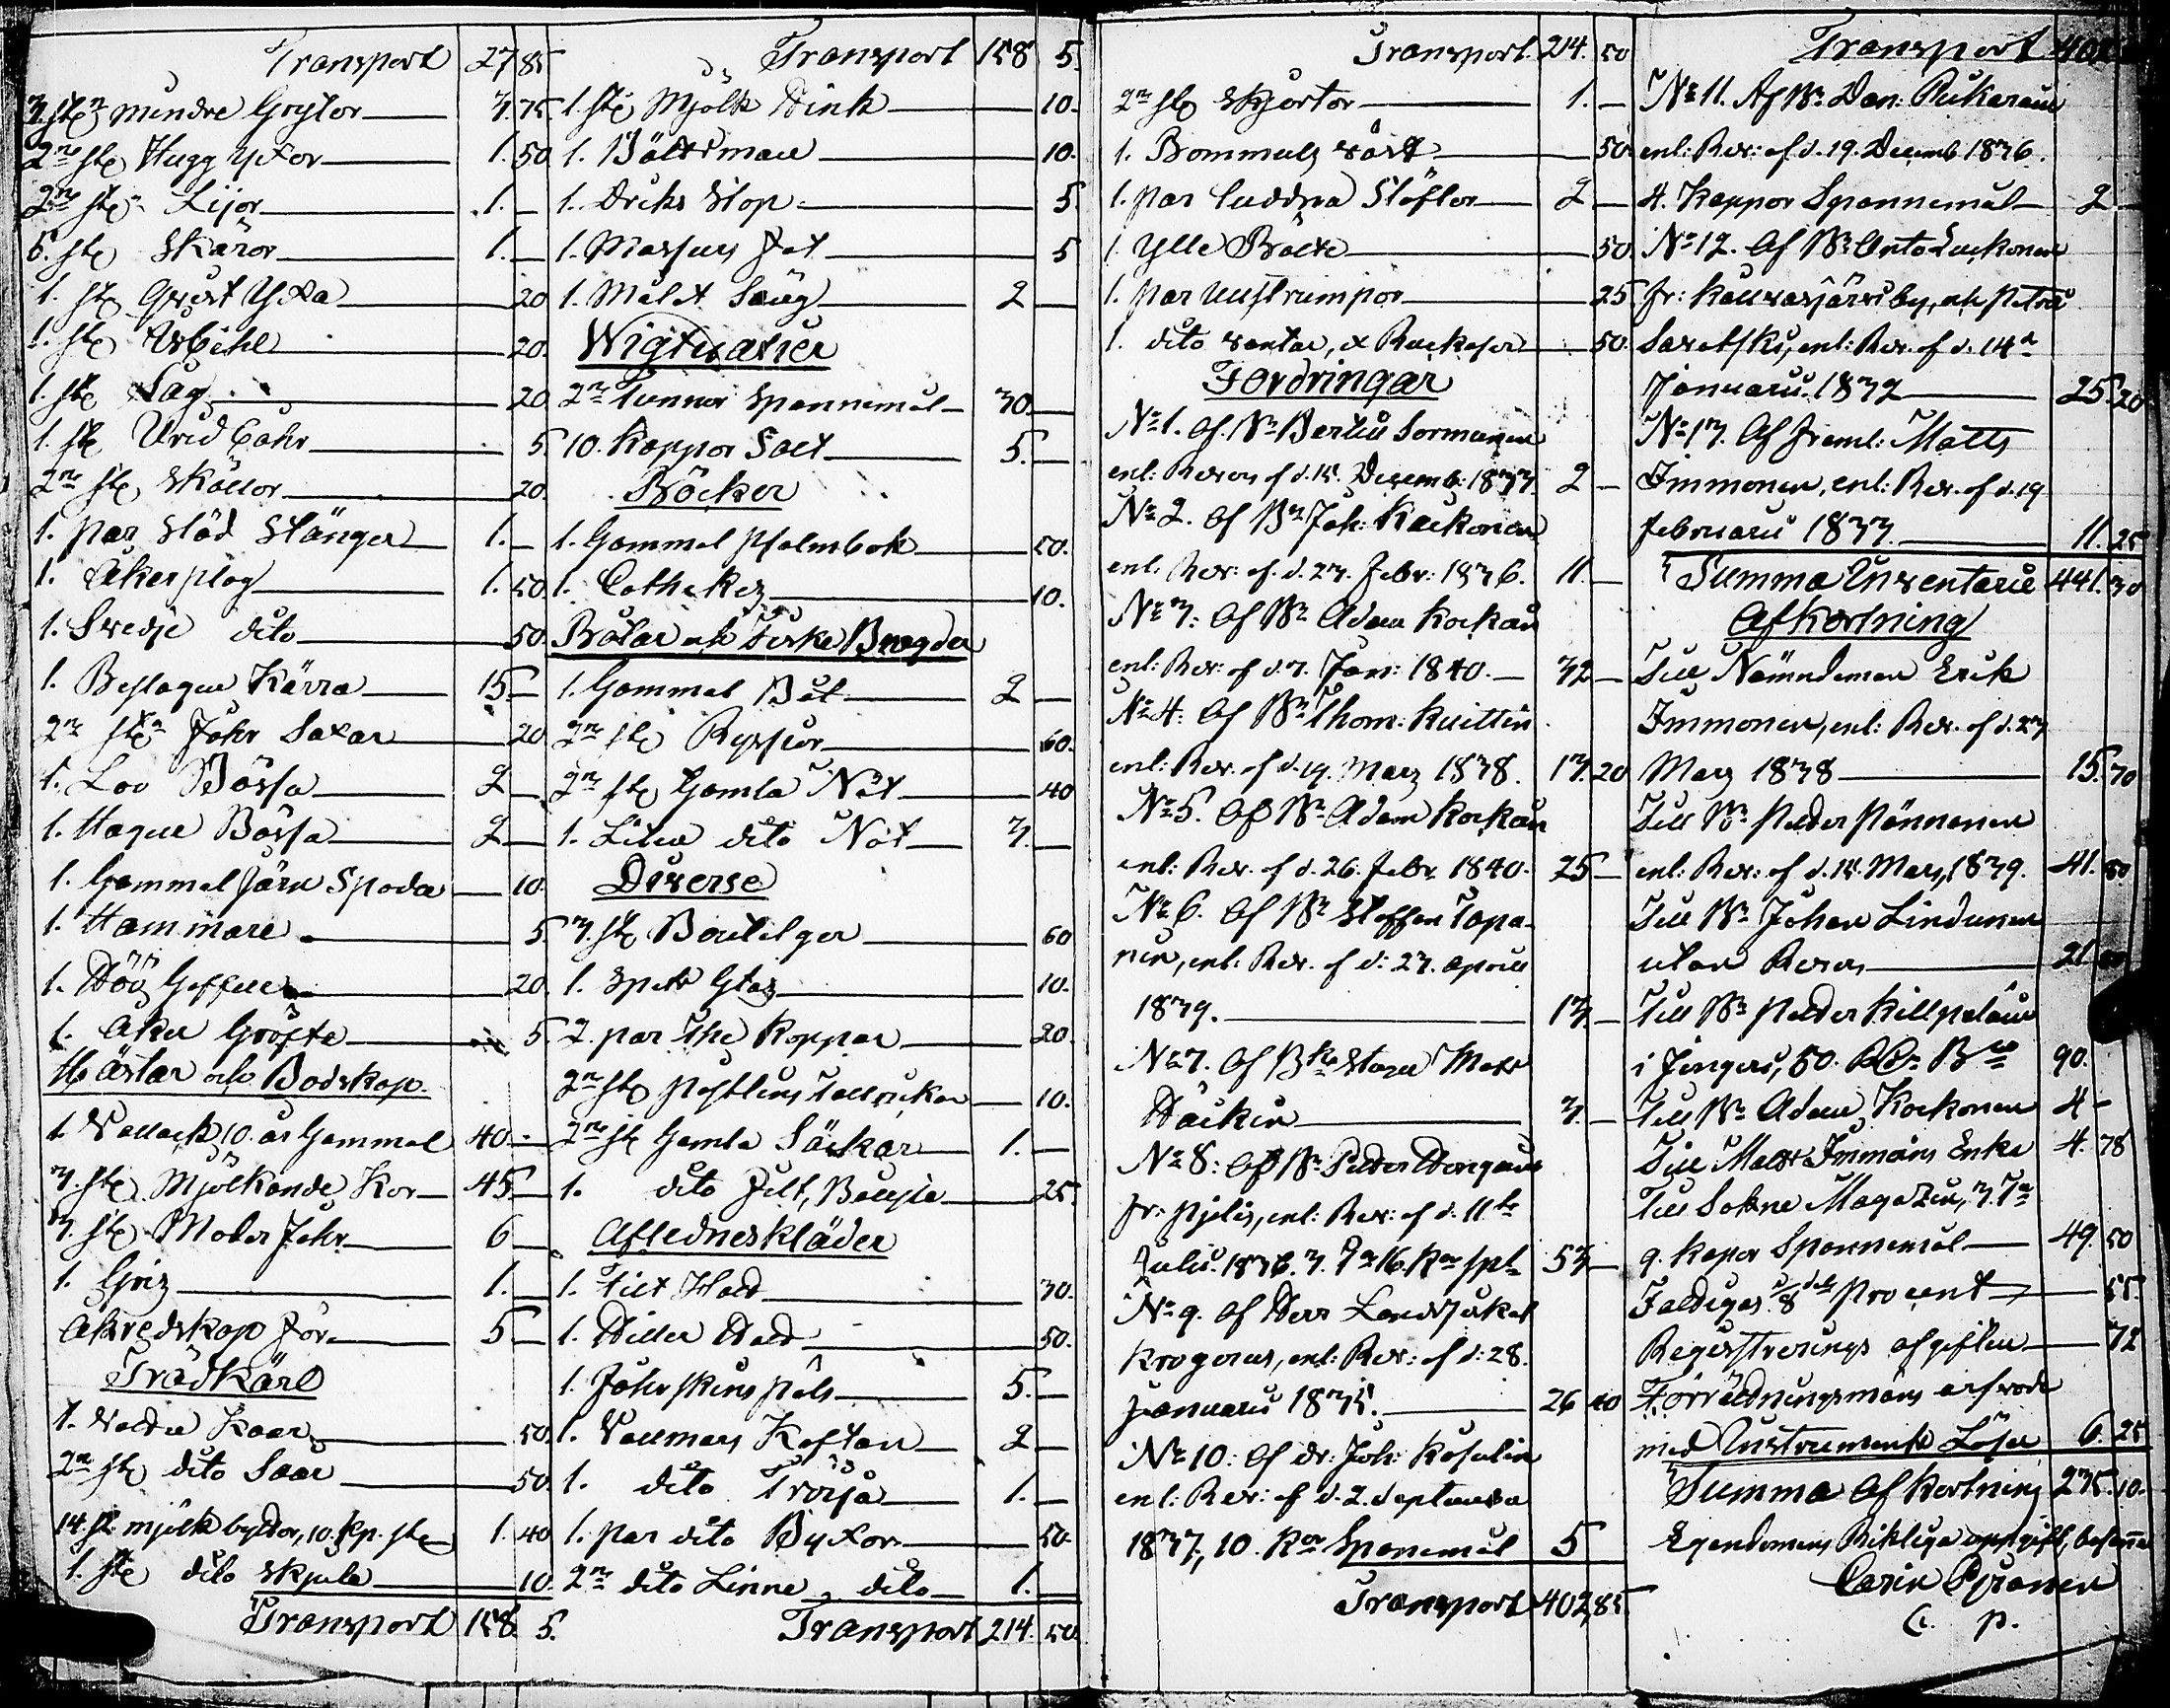 Transport 27 85
3 ste mindre Grytor 3. 75.
2ne ste Hugg Yxor 1. 50
2ne ste Lijor 1. —
5. ste Skäror 1. —
1. ste Qvist Yxa 20
1. ste 20.
1. ste Såg 20
1. ste Vrid Bahr 5
2ne ste Skällor 20.
1. par Slöd Stänger 1. —
1. Åkerplog 1. 50
1. Svedje dito 50.
1. Beslagen Kärra 15. —
2ne ste Fåhr Saxar 20
1. Lod Bössa 2 —
1. Hagel Bössa 2 —
1. Gammal Järn Spada 10.
1. Hammare 5.
1. Höö Gaffel 20.
1. Åker Gräfta 5.
Hästar och Bodskap.
1. Vallack, 10. år Gammal 40. —
3. ste Mjölkande Kor 45. —
3. ste Moder Fåhr 6 —
1. Gris 1. —
Åkredskap för 5 —
Trädkäril
1. Kaar 50.
2ne ste dito Saar 50.
14. st. mjölk byttor, 10. kp. ste 1. 40
1. ste dito skjula 10.
Transport 158. 5.
Transport 158 5.
1. ste Mjölk Hink 10.
1. Bältsman 10.
1. Dricks Stop 5.
1. Fat 5
1. Målt Säng 2 —
Wigtvarier
2ne Tunnor Spannemål 30. —
10. Kappor Salt 5. —
Böcker
1. Gammal Psalmbok 50.
1. Cathekes 10.
Båtar och Fiske Bragder
1. Gammal Båt 2 —
2ne ste Ryssior 60.
2ne ste Gamla Nät 40
1. Liten dito Not 3. —
Diverse
3. ste Bouteiljer 60
1. Spets Glas 10.
2. par The Koppar 20.
2ne ste Postlins Tallrickar 10.
2ne st Gamla Säckar 1. —
1. dito Filt, 25.
Aflednes kläder
1. Filt Hatt 30.
1. Hatt 50.
1. Fåhrskins päls 5. —
1. Vallmars Kaftan 2 —
1. dito Tröija 1. —
1. par dito Byxor 50.
2ne dito Linne, dito 1. —
Transport 214. 50.
Transport 214. 50
2ne ste Skjortor 1. —
1. Bommuls väst 50.
1. par luddna Stöflor 2 —
1. Ylle Bälte 50.
1. par Ullstrumpor 25.
1. dito vantar, & 50.
Fordringar
No 1. Af Bn Bertill Sormunen
enl: Revers af d. 15. Decemb: 1833. 2 —
No 2. Af Bn Joh: Kackonen
enl: Rev: af d. 23. Febr: 1836. 11. —
No 3: Af Bn Adam Kockoin
enl: Rev: af d. 3. Jan: 1840. 32 —
No 4: Af Bn Thom: Kuittin
enl: Rev: af d. 19. Mars 1838. 13. 20
No 5. Af Bn Adam Kockoin
enl: Rev. af d. 26. Febr. 1840. 25 —
No 6. Af Bn Staffan Topa-
nen, enl: Rev. af d: 23. April
1839. 13. —
No 7. Af Matts
Häckin 3. —
No 8: Af Bn Petter
fr: Pjelis, enl: Rev: af d: 11te
Julii 1836. 3. Tr 16. Kpr spl 53 —
No 9. Af Herr Landtfiskal
Krogerus, enl: Rev: af d: 28.
Januarii 1835. 26 40
No 10: Af dr: Joh: Rosulin
enl: Rev: af d. 2. Septemba
1837, 10. Kpr Spanemål 5
Transport 402. 85.
Transport 402
No 11. Af Bn Dan: Pukarain
enl: Rev: af d. 19. Decemb 1836.
4. Kappor Spannemål 2 —
No 12. Af Bn Anto Luckonen
fr: by, och Petri
enl: Rev. af d. 14n
Januarii 1832 25. 20
No 13. Af Matts
Immonen, enl: Rev. af d. 19
Februarii 1833. 11. 25
Summa Inventarie 441. 30
Afkortning
Till Nämndeman Erik
Immonen, enl: Rev. af d. 23
Mars 1838 15. 70
Till Bn Petter Pännenen
enl: Rev: af d. 15. Mars, 1839. 41. 50.
Till Bn Johan Lindunen
utan Revers 21.
Till Bn Petter Killpeläin
i 50. 90.
Till Bn Adam Kockonen 4 —
Till Matts Immoins Enka 4. 78
Till Sokne Magazin, 3 Tn
9. kapor Spannemål 49. 50
Fattigas 1/8 dels Procent 55.
Registrerings afgiften 72
Förrättningsmäns arfvode
med Instruments Lösen 6. 25
Summa Afkortning 235. 10.
Egendomens Riktiga oppgift, besanna
Carin Pyrönen
C. P.